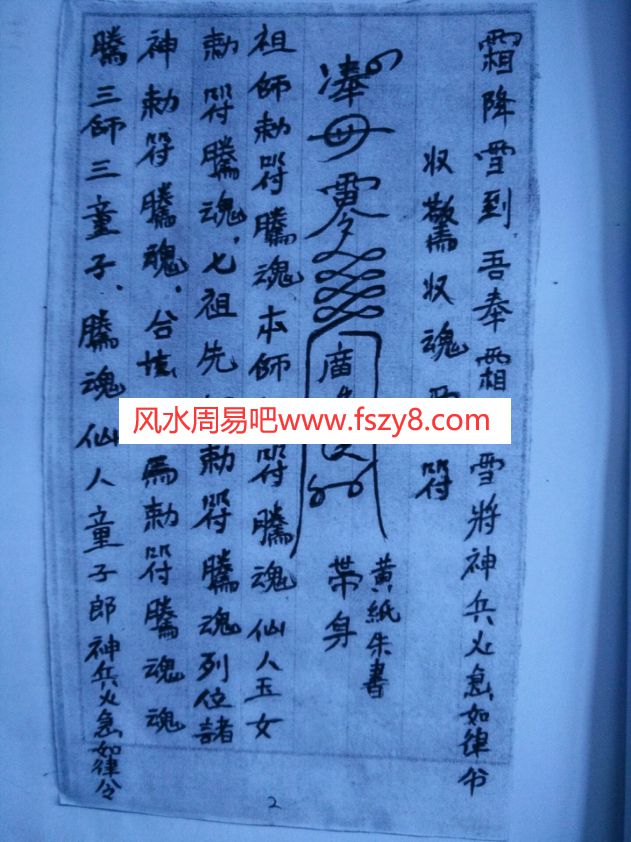 霜降雪到吾奉霜雪將神兵火急如律令
収驚収魂符
奉
廣
黃紙朱書
帶身
祖師勅符騰魂本師符騰魂仙人玉女
勅符騰魂,七祖先勅符騰魂列位諸
神勅符騰魂,合壇為勅符騰魂魂
騰三師三童子、騰魂仙人童子郎神兵火急如律令
风水周易吧www.fszy8.com
2